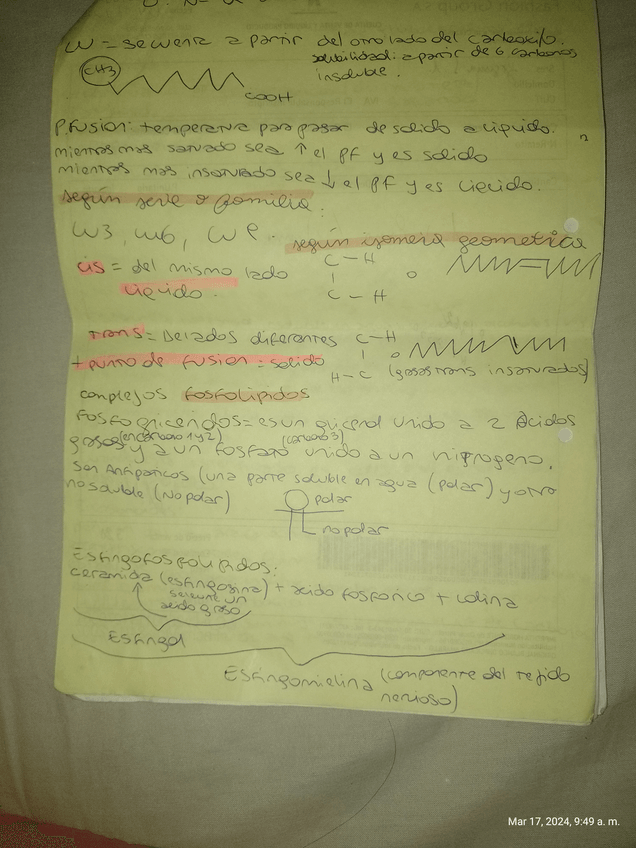 W = se cuenta a partir del otro lado del carboxilo.
solubilidad: a partir de 6 carbonos
insoluble.
CH3
COOH
P. Fusion: temperatura para pasar de solido a liquido.
mientras mas saturado sea ↑ el pf y es solido
mientras mas insaturado sea ↓ el pf y es liquido.
según serie o familia:
W3, W6, W9. según isomeria geometrica
cis = del mismo lado C - H
o
liquido. C - H
trans = De lados diferentes C - H
o
+ punto de fusion = solido H - C (grasas trans insaturados)
complejos fosfolipidos
Fosfogliceridos = es un glicerol unido a 2 Acidos
(en carbono 1 y 2) (carbono 3)
grasos y a un fosfato unido a un nitrogeno.
Son Anfipaticos (una parte soluble en agua (polar) y otra
no soluble (No polar) polar
no polar
Esfingofosfolipidos:
ceramida (esfingosina) + acido fosforico + colina
se le une un
acido graso
Esfingol
Esfingomielina (componente del tejido
nervioso)
Mar 17, 2024, 9:49 a. m.